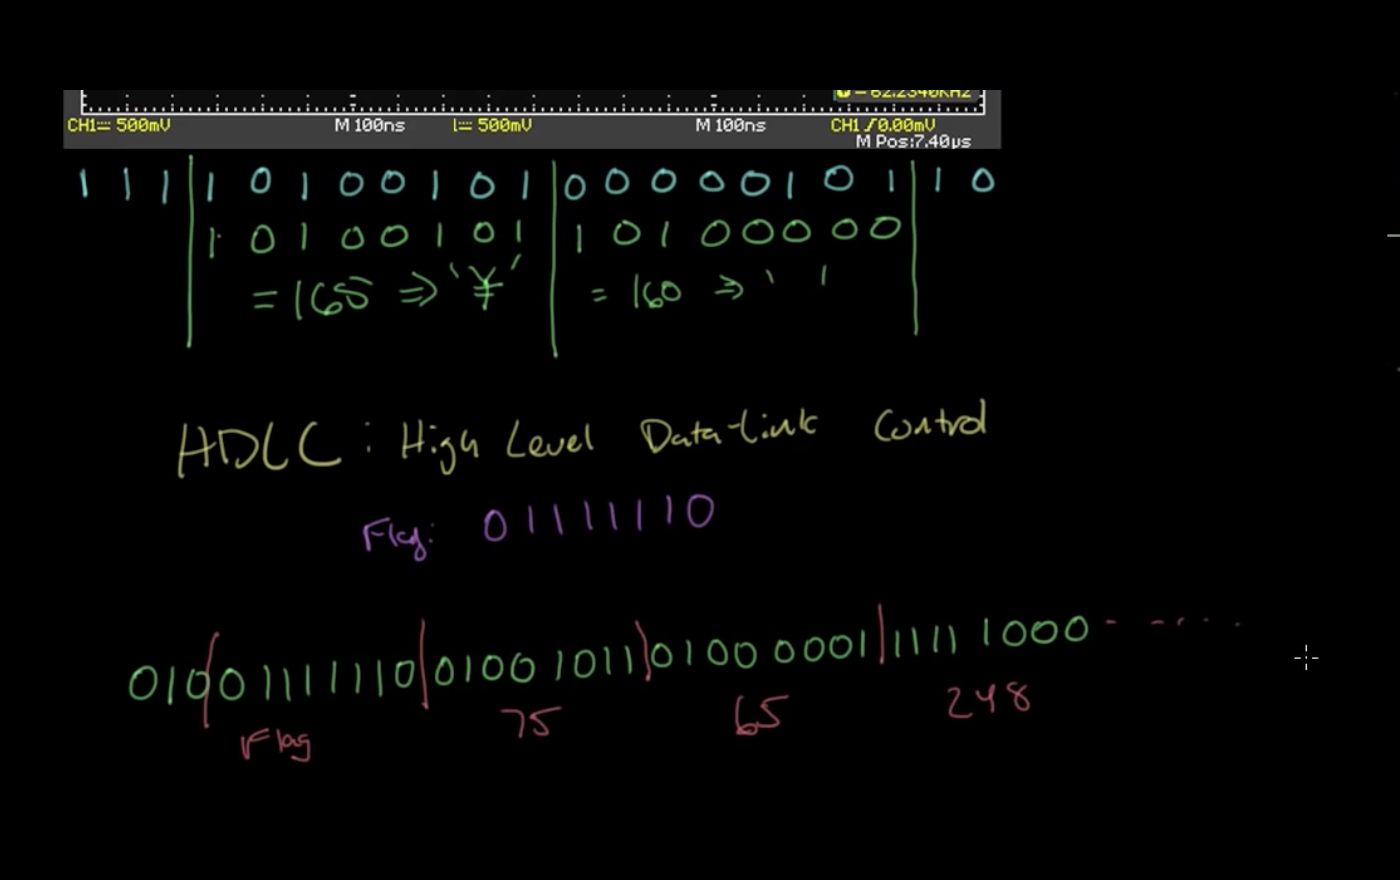 CH1= 500mV M 100ns 500mV M 100ns CH1 / 0.00mV
M Pos:7.40µs
1 1 1 1 0 1 0 0 1 0 1 0 0 0 0 0 1 0 1 1 0
1 0 1 0 0 1 0 1 1 0 1 0 0 0 0 0
= 165 ⇒ '¥' = 160 ⇒ ' '
HDLC: High Level Data-Link Control
Flag: 01111110
010 01111110 01001011 01000001 11111000 - - - - -
Flag 75 65 248